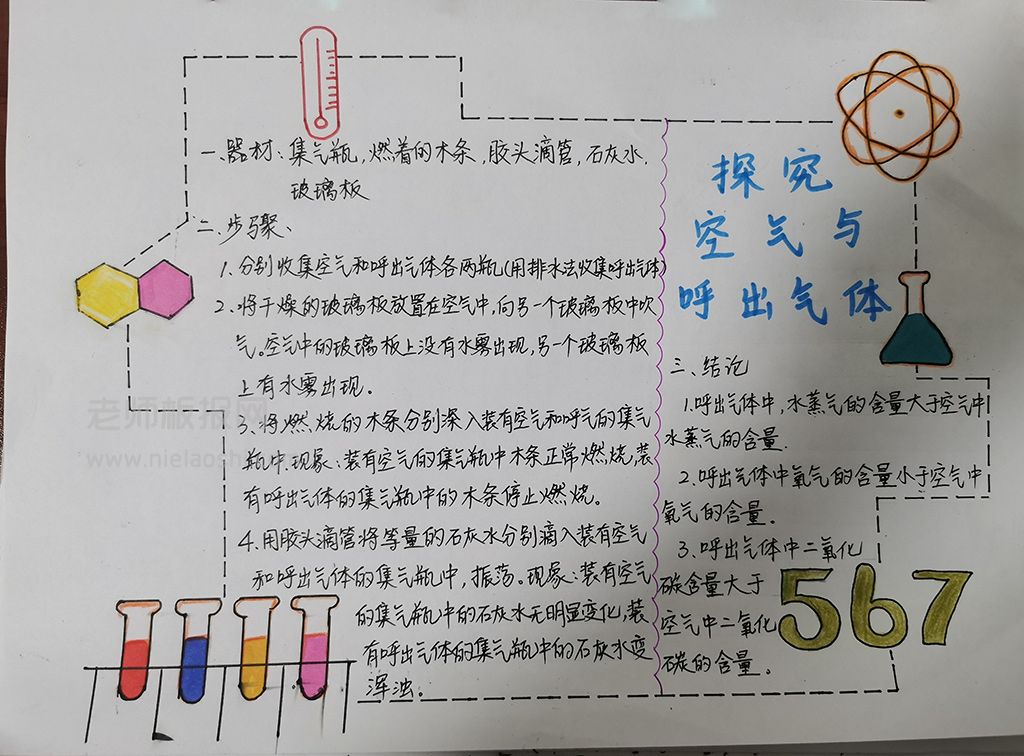 一、器材：集气瓶，燃着的木条，胶头滴管，石灰水，
玻璃板
二、步骤、
1、分别收集空气和呼出气体各两瓶（用排水法收集呼出气体）
2、将干燥的玻璃板放置在空气中，向另一个玻璃板中吹
气。空气中的玻璃板上没有水雾出现，另一个玻璃板
上有水雾出现．
3、将燃烧的木条分别深入装有空气和呼气的集气
瓶中．现象：装有空气的集气瓶中木条正常燃烧，装
有呼出气体的集气瓶中的木条停止燃烧。
4、用胶头滴管将等量的石灰水分别滴入装有空气
和呼出气体的集气瓶中，振荡。现象：装有空气
的集气瓶中的石灰水无明显变化，装
有呼出气体的集气瓶中的石灰水变
浑浊。
探究
空气与
呼出气体
三、结论
1、呼出气体中，水蒸气的含量大于空气中
水蒸气的含量．
2、呼出气体中氧气的含量小于空气中
氧气的含量．
3、呼出气体中二氧化
碳含量大于
空气中二氧化
碳的含量．
567
老师板报网
www.nielaoshi